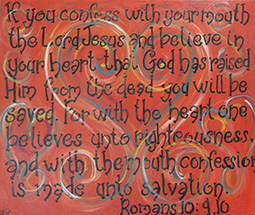 If you confess with your mouth
the Lord Jesus and believe in
your heart that God has raised
Him from the dead you will be
saved. for with the heart one
believes unto righteousness,
and with the mouth confession
is made unto salvation.
Romans 10:9,10